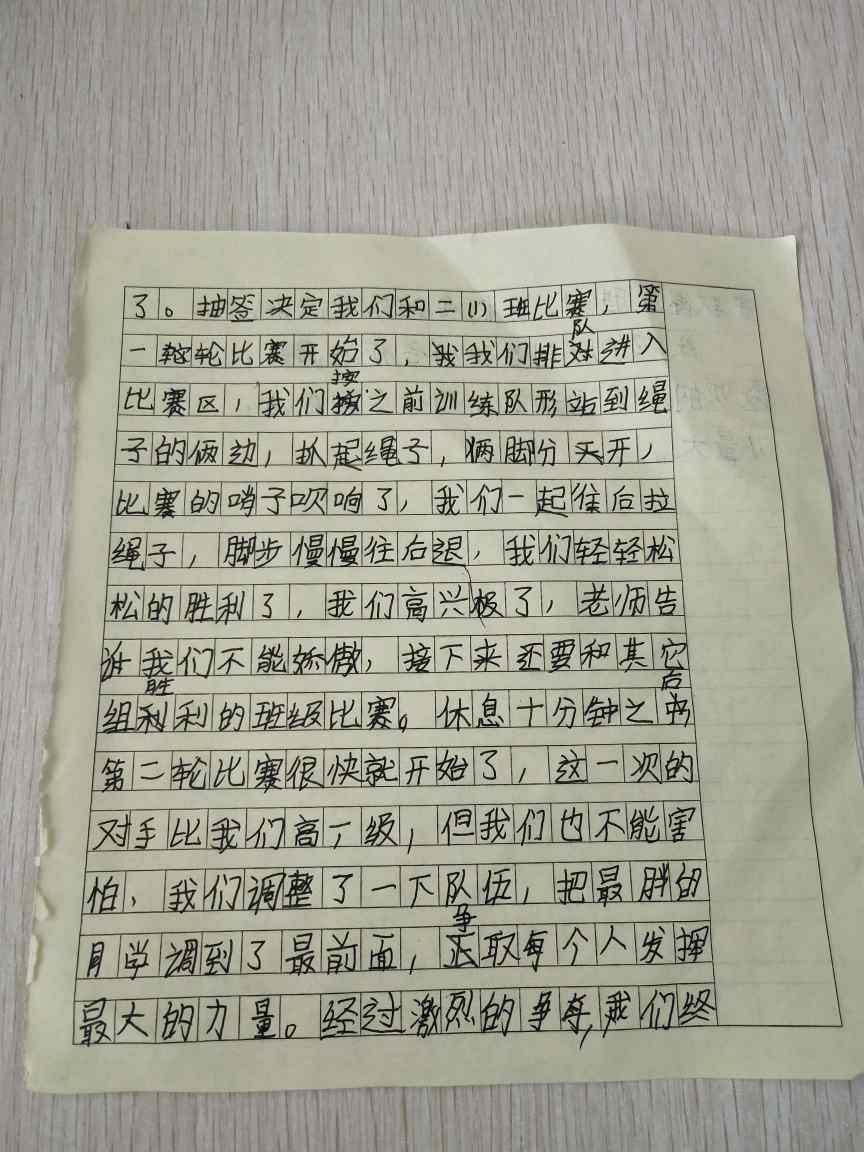 了。抽签决定我们和二(1)班比赛,第
一轮比赛开始了,我们排队进入
比赛区,我们按之前训练队形站到绳
子的俩边,抓起绳子,俩脚分开,
比赛的哨子吹响了,我们一起往后拉
绳子,脚步慢慢往后退,我们轻轻松
松的胜利了,我们高兴极了,老师告
诉我们不能娇傲,接下来还要和其它
组胜利的班级比赛。休息十分钟之后
第二轮比赛很快就开始了,这一次的
对手比我们高丁级,但我们也不能害
怕,我们调整了一下队伍,把最胖的
同学调到了最前面,争取每个人发挥
最大的力量。经过激烈的争夺,我们终